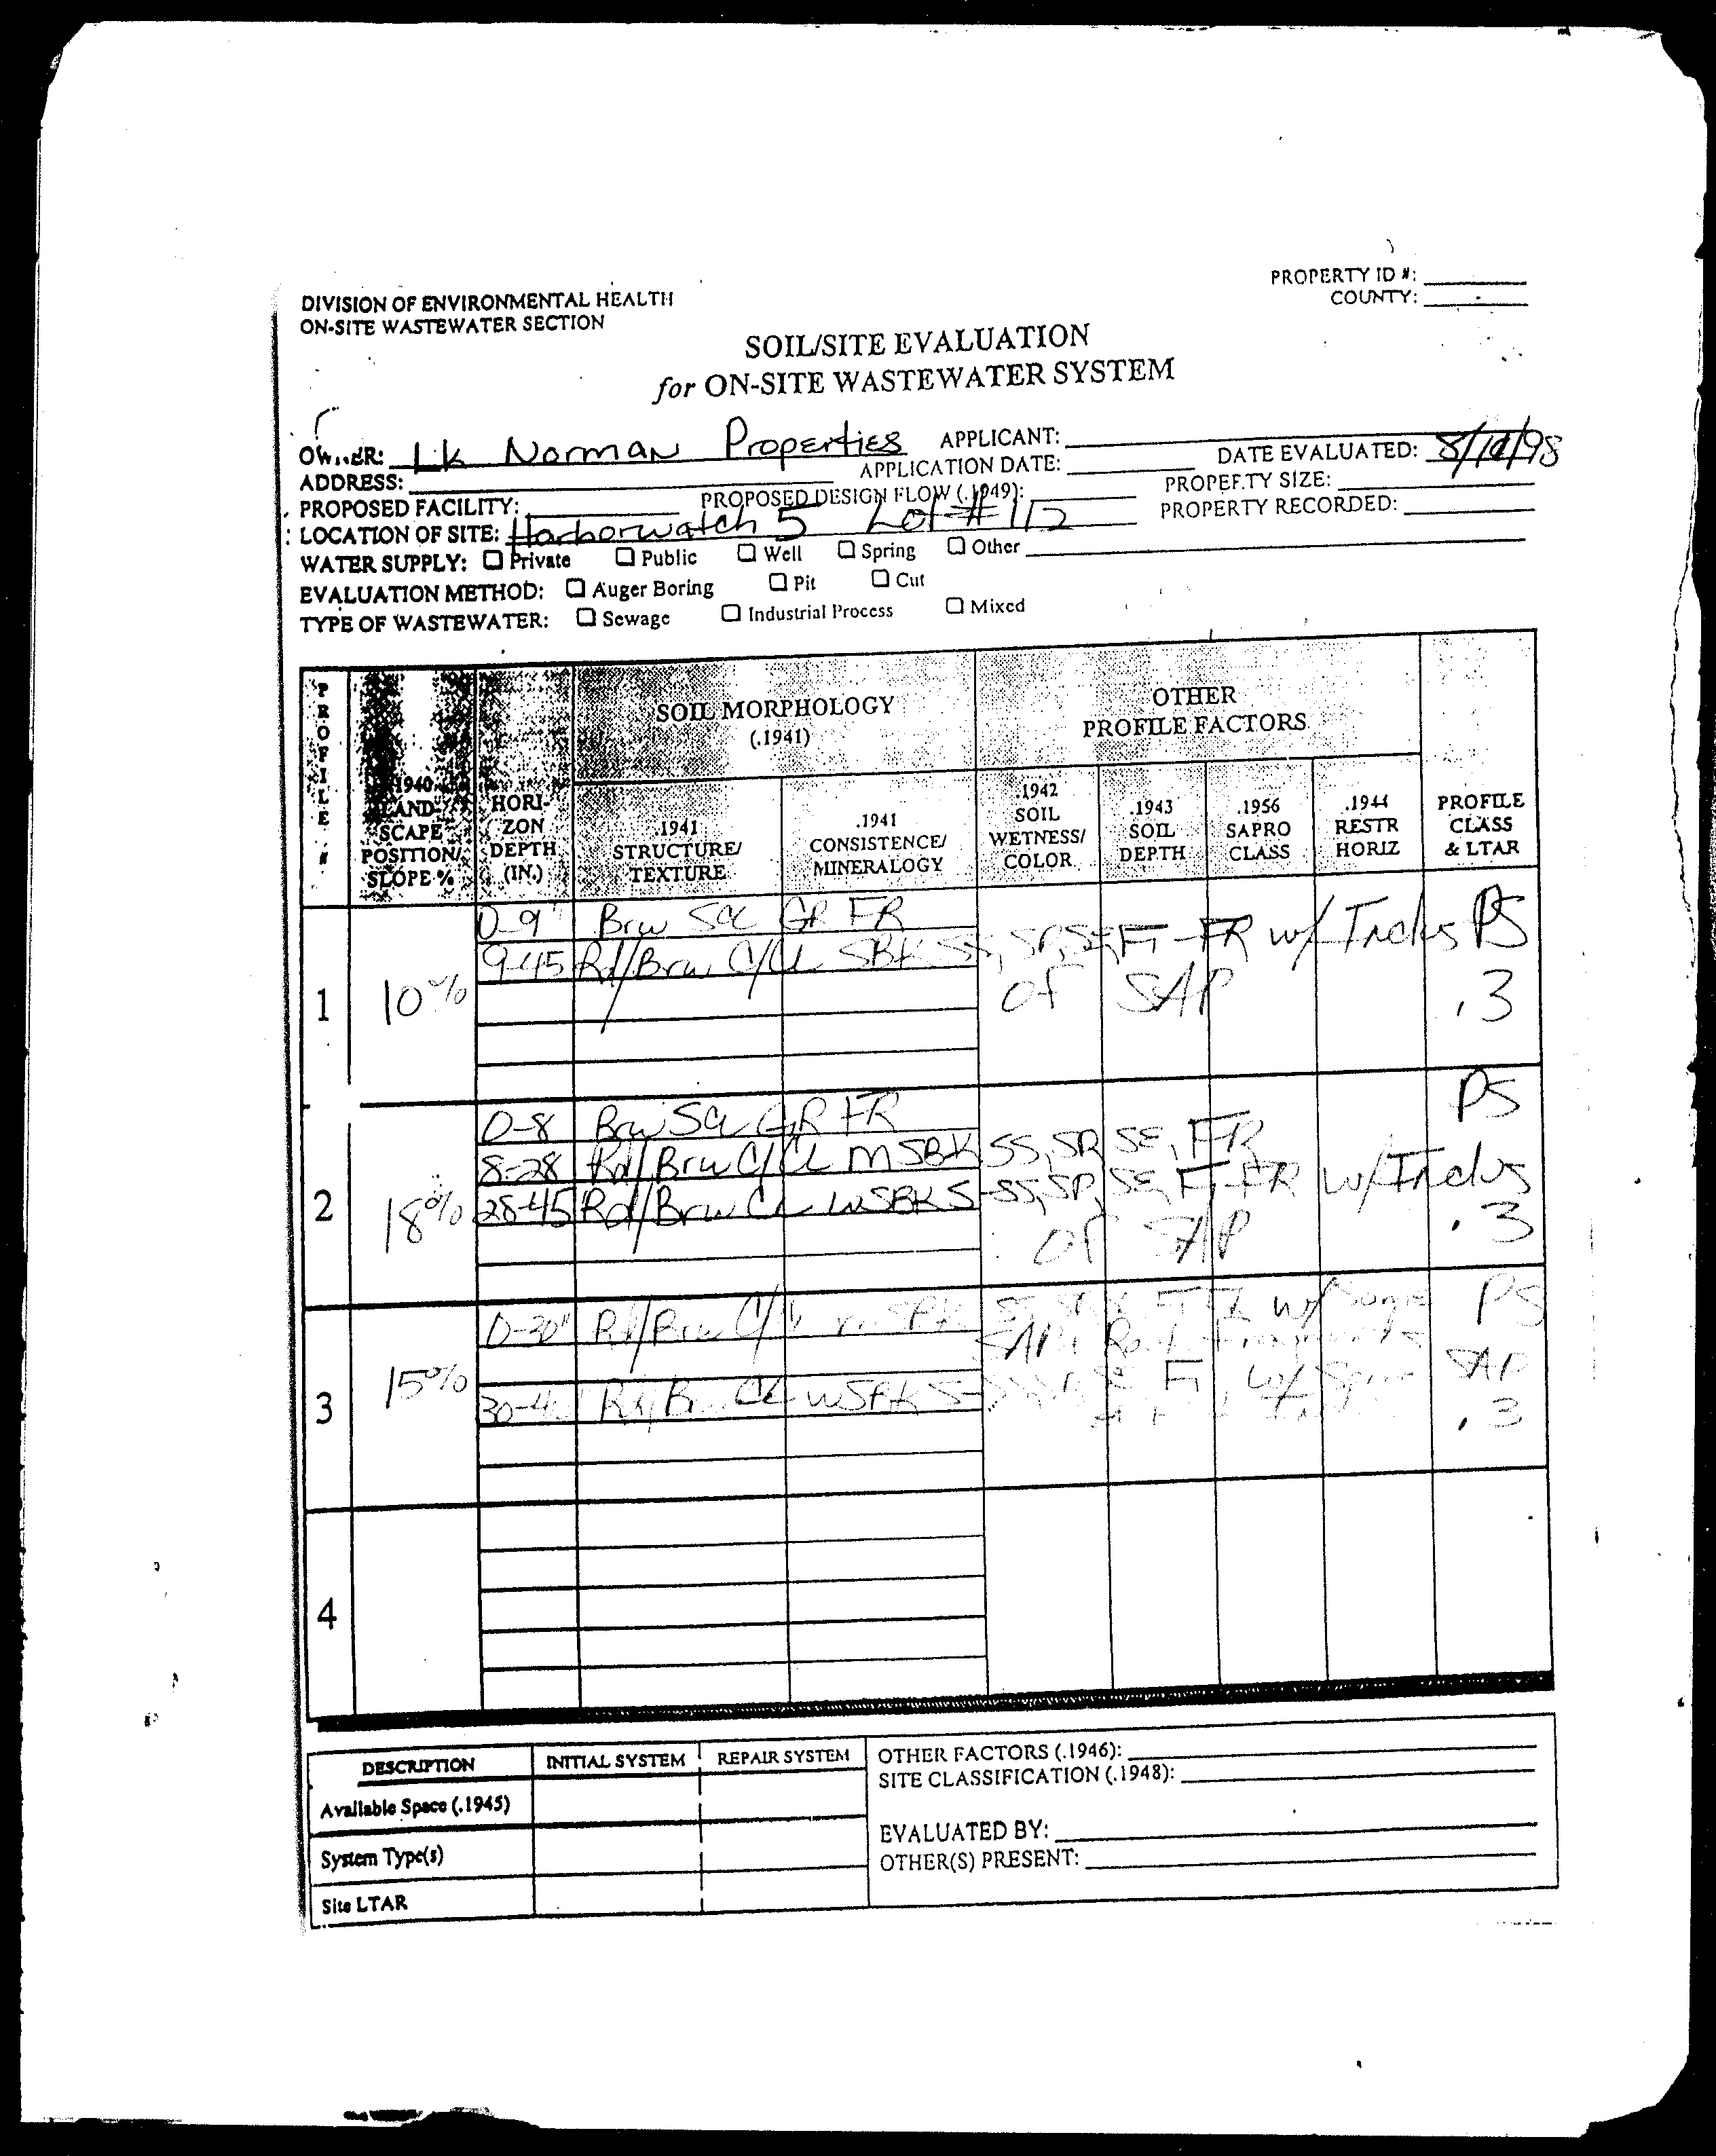 PROPERTY ID #:
COUNTY:
DIVISION OF ENVIRONMENTAL HEALTH
ON-SITE WASTEWATER SECTION
SOIL/SITE EVALUATION
for ON-SITE WASTEWATER SYSTEM
OWNER: Lk Norman Properties APPLICANT:
ADDRESS: APPLICATION DATE: DATE EVALUATED:
PROPOSED FACILITY: PROPOSED DESIGN FLOW (.1949): PROPERTY SIZE:
LOCATION OF SITE: Harborwatch 5 Lot # 112 PROPERTY RECORDED:
WATER SUPPLY: Private Public Well Spring Other
EVALUATION METHOD: Auger Boring Pit Cut
TYPE OF WASTEWATER: Sewage Industrial Process Mixed
PROFILE #
.1940 LAND-SCAPE POSITION/ SLOPE %
HORI-ZON DEPTH (IN.)
SOIL MORPHOLOGY
(.1941)
OTHER
PROFILE FACTORS
.1941 STRUCTURE/ TEXTURE
.1941 CONSISTENCE/ MINERALOGY
.1942 SOIL WETNESS/ COLOR
.1943 SOIL DEPTH
.1956 SAPRO CLASS
.1944 RESTR HORIZ
PROFILE CLASS & LTAR
0-9" Brw SCL GR FR
9-45 Rd/Brw C/CL SBK SS, SP, SE, FI-FR w/ Inclus PS
1 10% of SAP .3
0-8 Brw SCL GR FR PS
8-28 Rd/Brw C/CL M SBK SS, SP, SE, FR
2 18% 28-45 Rd/Brw CL WSBK S-SS, SP, SE, FI-FR w/ Inclus
of SAP .3
0-30" Rd/Brw w/ Some PS
SAP
3 15% CL WSBK FI, w/ SAP
.3
4
DESCRIPTION INITIAL SYSTEM REPAIR SYSTEM
Available Space (.1945)
System Type(s)
Site LTAR
OTHER FACTORS (.1946):
SITE CLASSIFICATION (.1948):
EVALUATED BY:
OTHER(S) PRESENT: